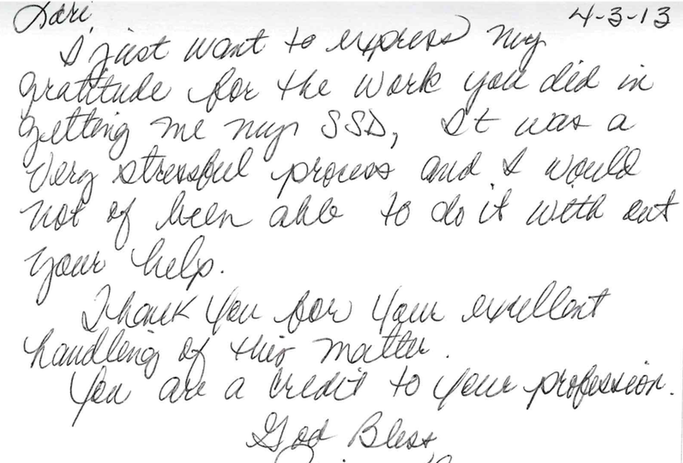 Lori, 4-3-13
I just want to express my
gratitude for the work you did in
getting me my SSD, It was a
very stressful process and I would
not of been able to do it with out
your help.
Thank you for your excellent
handling of this matter.
You are a credit to your profession.
God Bless,